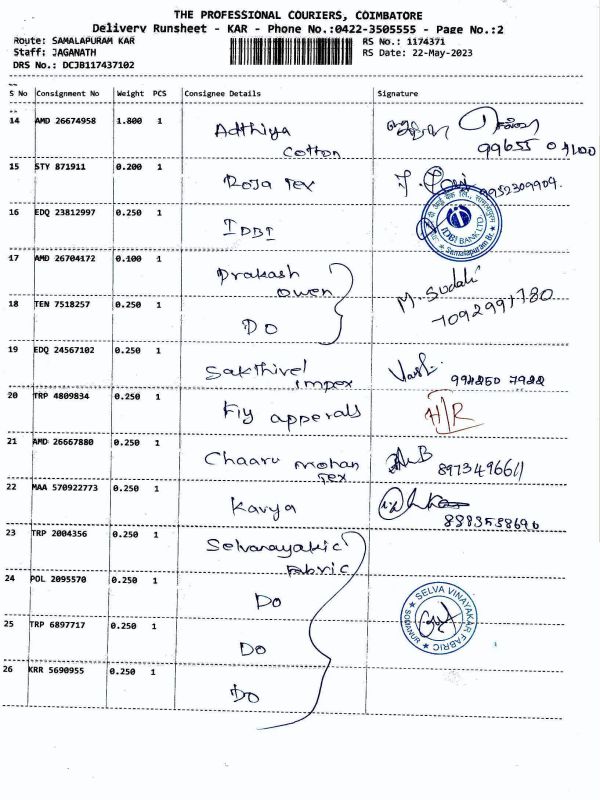 THE PROFESSIONAL COURIERS, COIMBATORE
Delivery Runsheet - KAR - Phone No.:0422-3505555 - Page No.:2
Route: SAMALAPURAM KAR RS No.: 1174371
Staff: JAGANATH RS Date: 22-May-2023
DRS No.: DCJB117437102
S No Consignment No Weight PCS Consignee Details Signature
14 AMD 26674958 1.800 1 Adthiya
cotton 99655 04100
15 STY 871911 0.200 1 Roja Tex 9952309909.
16 EDQ 23812997 0.250 1 IDBI
IDBI BANK LTD.
Samalapuram Br.
17 AMD 26704172 0.100 1 Prakash
owen M. Sudaki
18 TEN 7518257 0.250 1 DO 7092991780
19 EDQ 24567102 0.250 1 Sakthivel
impex 994250 7922
20 TRP 4809834 0.250 1 Fly apperals H/R
21 AMD 26667880 0.250 1 Chaaru mohan
Tex 897349661
22 MAA 570922773 0.250 1 Kavya
8883538690
23 TRP 2004356 0.250 1 Selvanayakic
Fabric
24 POL 2095570 0.250 1 DO
SELVA VINAYAKAR FABRIC
SODIANUR
25 TRP 6897717 0.250 1 DO
26 KRR 5690955 0.250 1 DO